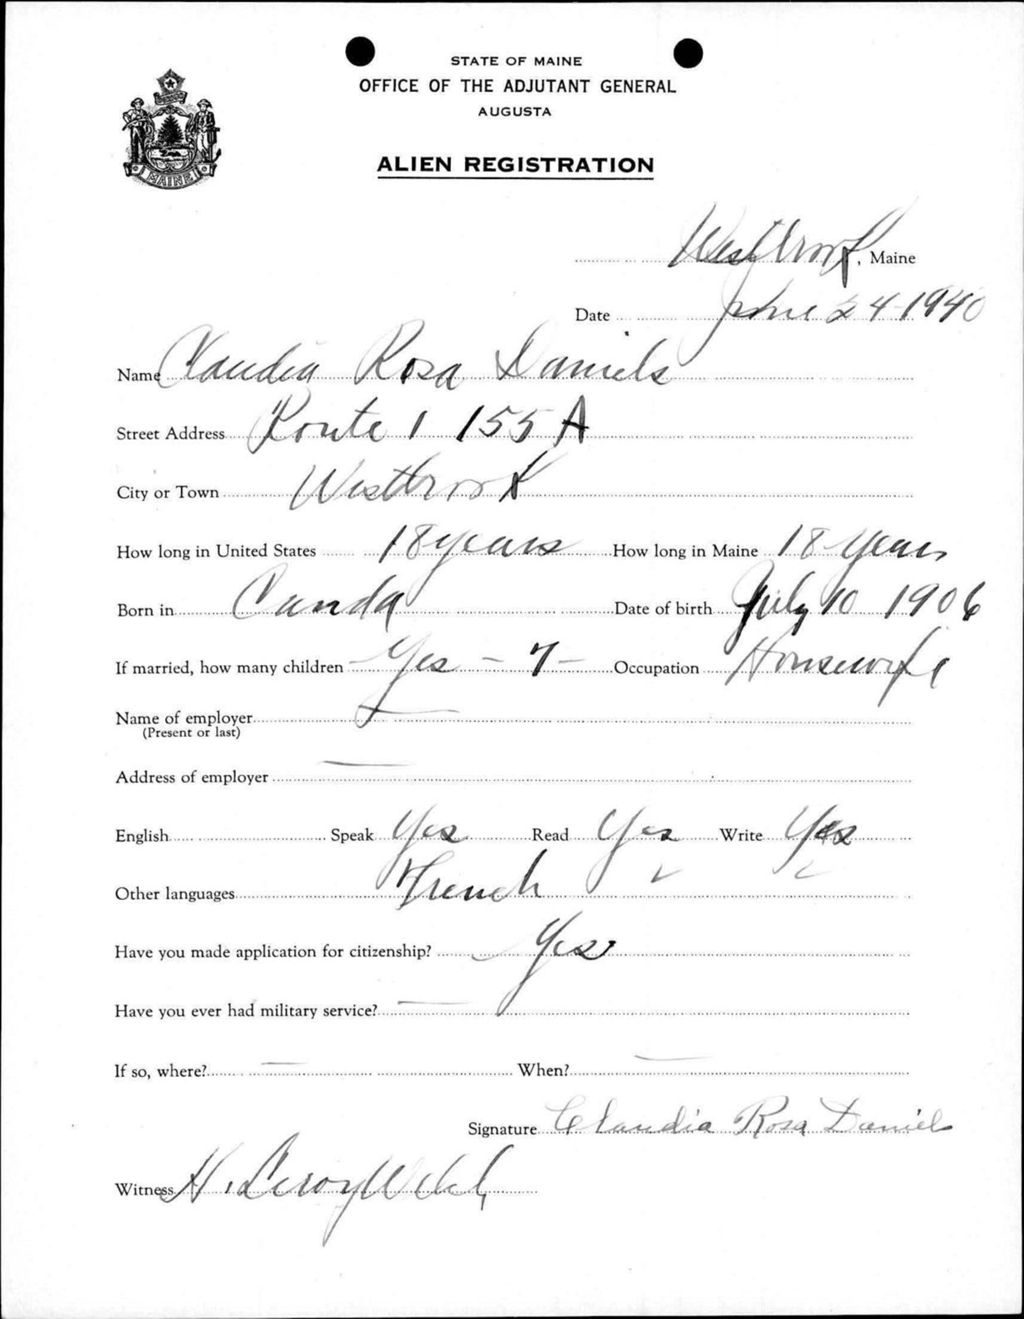 STATE OF MAINE
OFFICE OF THE ADJUTANT GENERAL
AUGUSTA
MAINE
ALIEN REGISTRATION
Westbrook, Maine
Date June 24-1940
Name Claudia Rosa Daniels
Street Address Route 1 155 A
City or Town Westbrook
How long in United States 18 years How long in Maine 18 Years
Born in Canda Date of birth July 10 1906
If married, how many children Yes - 7 - Occupation Housewife
Name of employer
(Present or last)
Address of employer
English Speak Yes Read Yes Write Yes
Other languages French
Have you made application for citizenship? Yes
Have you ever had military service?
If so, where? When?
Signature Claudia Rosa Daniels
Witness H. Leroy Welch